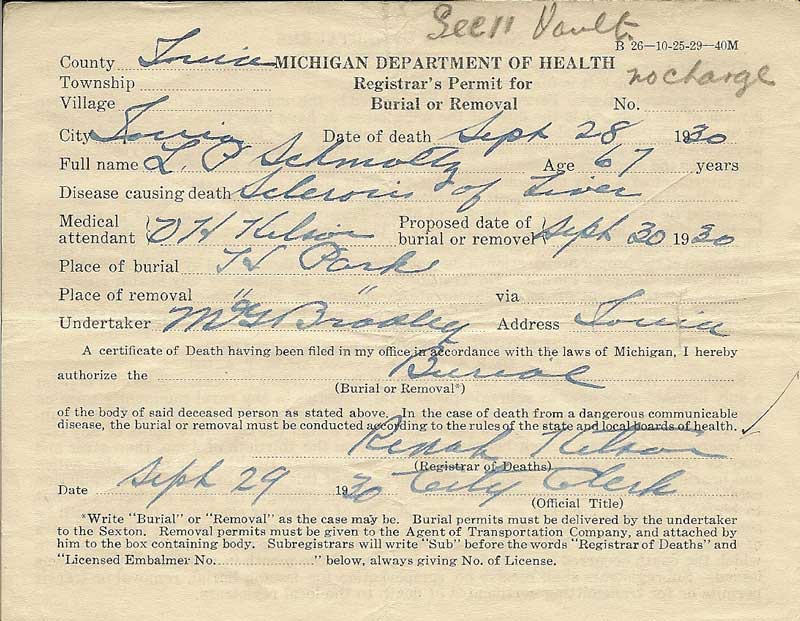 See 11 Vault
B 26—10-25-29—40M
County Ionia MICHIGAN DEPARTMENT OF HEALTH
no charge
Township
Registrar's Permit for
Village
Burial or Removal No.
City Ionia Date of death Sept 28 1930
Full name L. P Schmoltz Age 67 years
Disease causing death Sclerosis of Liver
Medical attendant O H Kelsie Proposed date of burial or removel Sept 30 1930
Place of burial H Park
Place of removal " " via
Undertaker Bradley Address Ionia
A certificate of Death having been filed in my office in accordance with the laws of Michigan, I hereby
authorize the Burial
(Burial or Removal*)
of the body of said deceased person as stated above. In the case of death from a dangerous communicable
disease, the burial or removal must be conducted according to the rules of the state and local boards of health.
(Registrar of Deaths)
Date Sept 29 1930 City Clerk
(Official Title)
*Write "Burial" or "Removal" as the case may be. Burial permits must be delivered by the undertaker
to the Sexton. Removal permits must be given to the Agent of Transportation Company, and attached by
him to the box containing body. Subregistrars will write "Sub" before the words "Registrar of Deaths" and
"Licensed Embalmer No. " below, always giving No. of License.